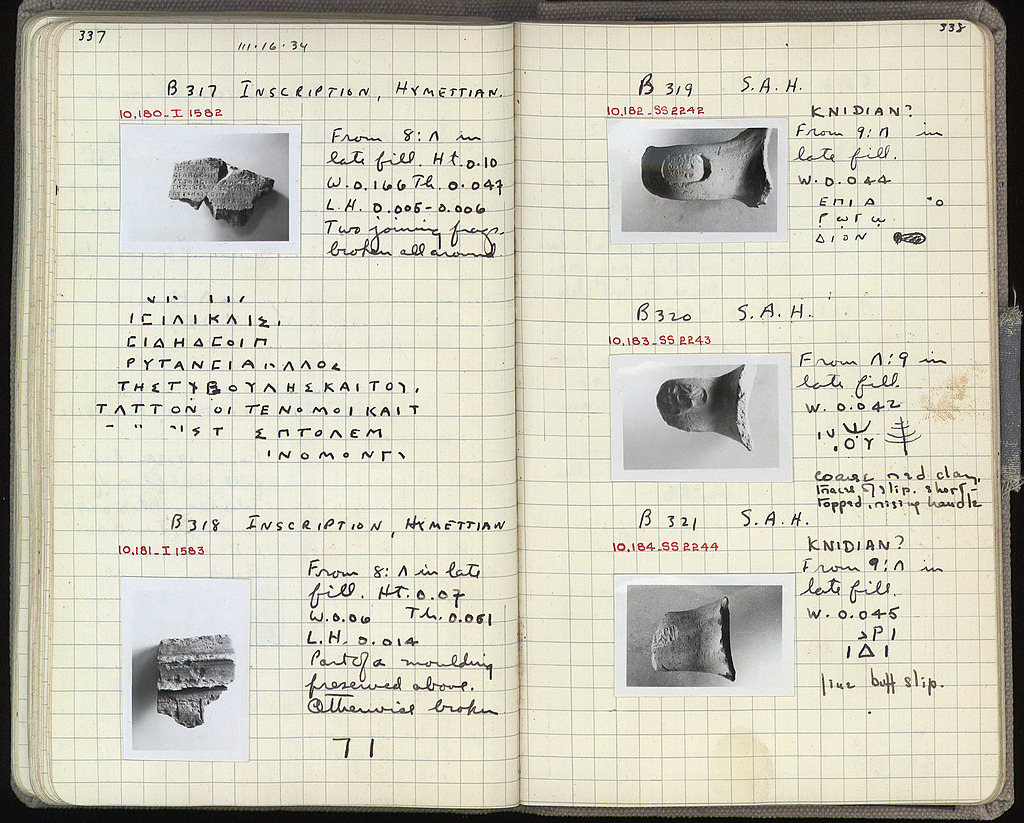 337
111·16·34
B 317 INSCRIPTION, HYMETTIAN.
10,180_I 1582
From 8:Λ in
late fill. Ht. 0.10
W. 0.166 Th. 0.047
L.H. 0.005-0.006
Two joining frags.
broken all around
ΡΥΤΑΝΕΙΑ ΛΛΟΣ
ΒΟΥΛΗΣΚΑΙΤΟΥ
ΤΑΤΤΟΝ ΟΙ ΤΕΝΟΜΟΙΚΑΙΤ
ΣΤ ΣΠΤΟΛΕΜ
ΙΝΟΜΟΝΓΙ
B 318 INSCRIPTION, HYMETTIAN
10,181_I 1583
From 8:Λ in late
fill. Ht. 0.07
W. 0.06 Th. 0.051
L.H. 0.014
Part of a moulding
preserved above.
Otherwise broken
71
338
B 319 S.A.H.
10,182_SS 2242
KNIDIAN?
From 9:Λ in
late fill.
W. 0.044
ΕΠΙ Α
ΔΙΟΝ
B 320 S.A.H.
10,183_SS 2243
From Λ:9 in
late fill.
W. 0.042
coarse red clay,
traces of slip. short-
topped, rising handle
B 321 S.A.H.
10,184_SS 2244
KNIDIAN?
From 9:Λ in
late fill.
W. 0.045
ΡΙ
ΙΔΙ
fine buff slip.